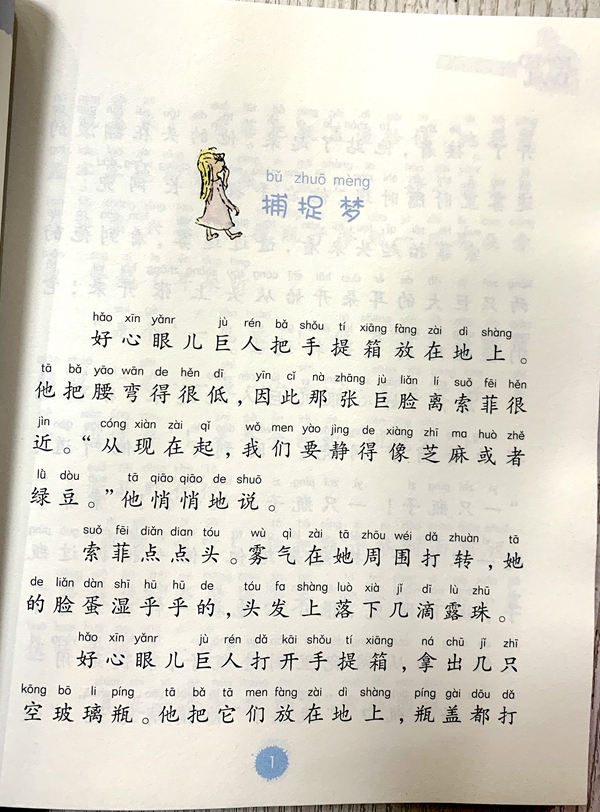 bǔ zhuō mèng
捕捉梦
hǎo xīn yǎnr jù rén bǎ shǒu tí xiāng fàng zài dì shàng
好心眼儿巨人把手提箱放在地上。
tā bǎ yāo wān de hěn dī yīn cǐ nà zhāng jù liǎn lí suǒ fēi hěn
他把腰弯得很低，因此那张巨脸离索菲很
jìn cóng xiàn zài qǐ wǒ men yào jìng de xiàng zhī ma huò zhě
近。“从现在起，我们要静得像芝麻或者
lǜ dòu tā qiāo qiāo de shuō
绿豆。”他悄悄地说。
suǒ fēi diǎn dian tóu wù qì zài tā zhōu wéi dǎ zhuàn tā
索菲点点头。雾气在她周围打转，她
de liǎn dàn shī hū hū de tóu fa shàng luò xià jǐ dī lù zhū
的脸蛋湿乎乎的，头发上落下几滴露珠。
hǎo xīn yǎnr jù rén dǎ kāi shǒu tí xiāng ná chū jǐ zhī
好心眼儿巨人打开手提箱，拿出几只
kōng bō li píng tā bǎ tā men fàng zài dì shàng píng gài dōu dǎ
空玻璃瓶。他把它们放在地上，瓶盖都打
1